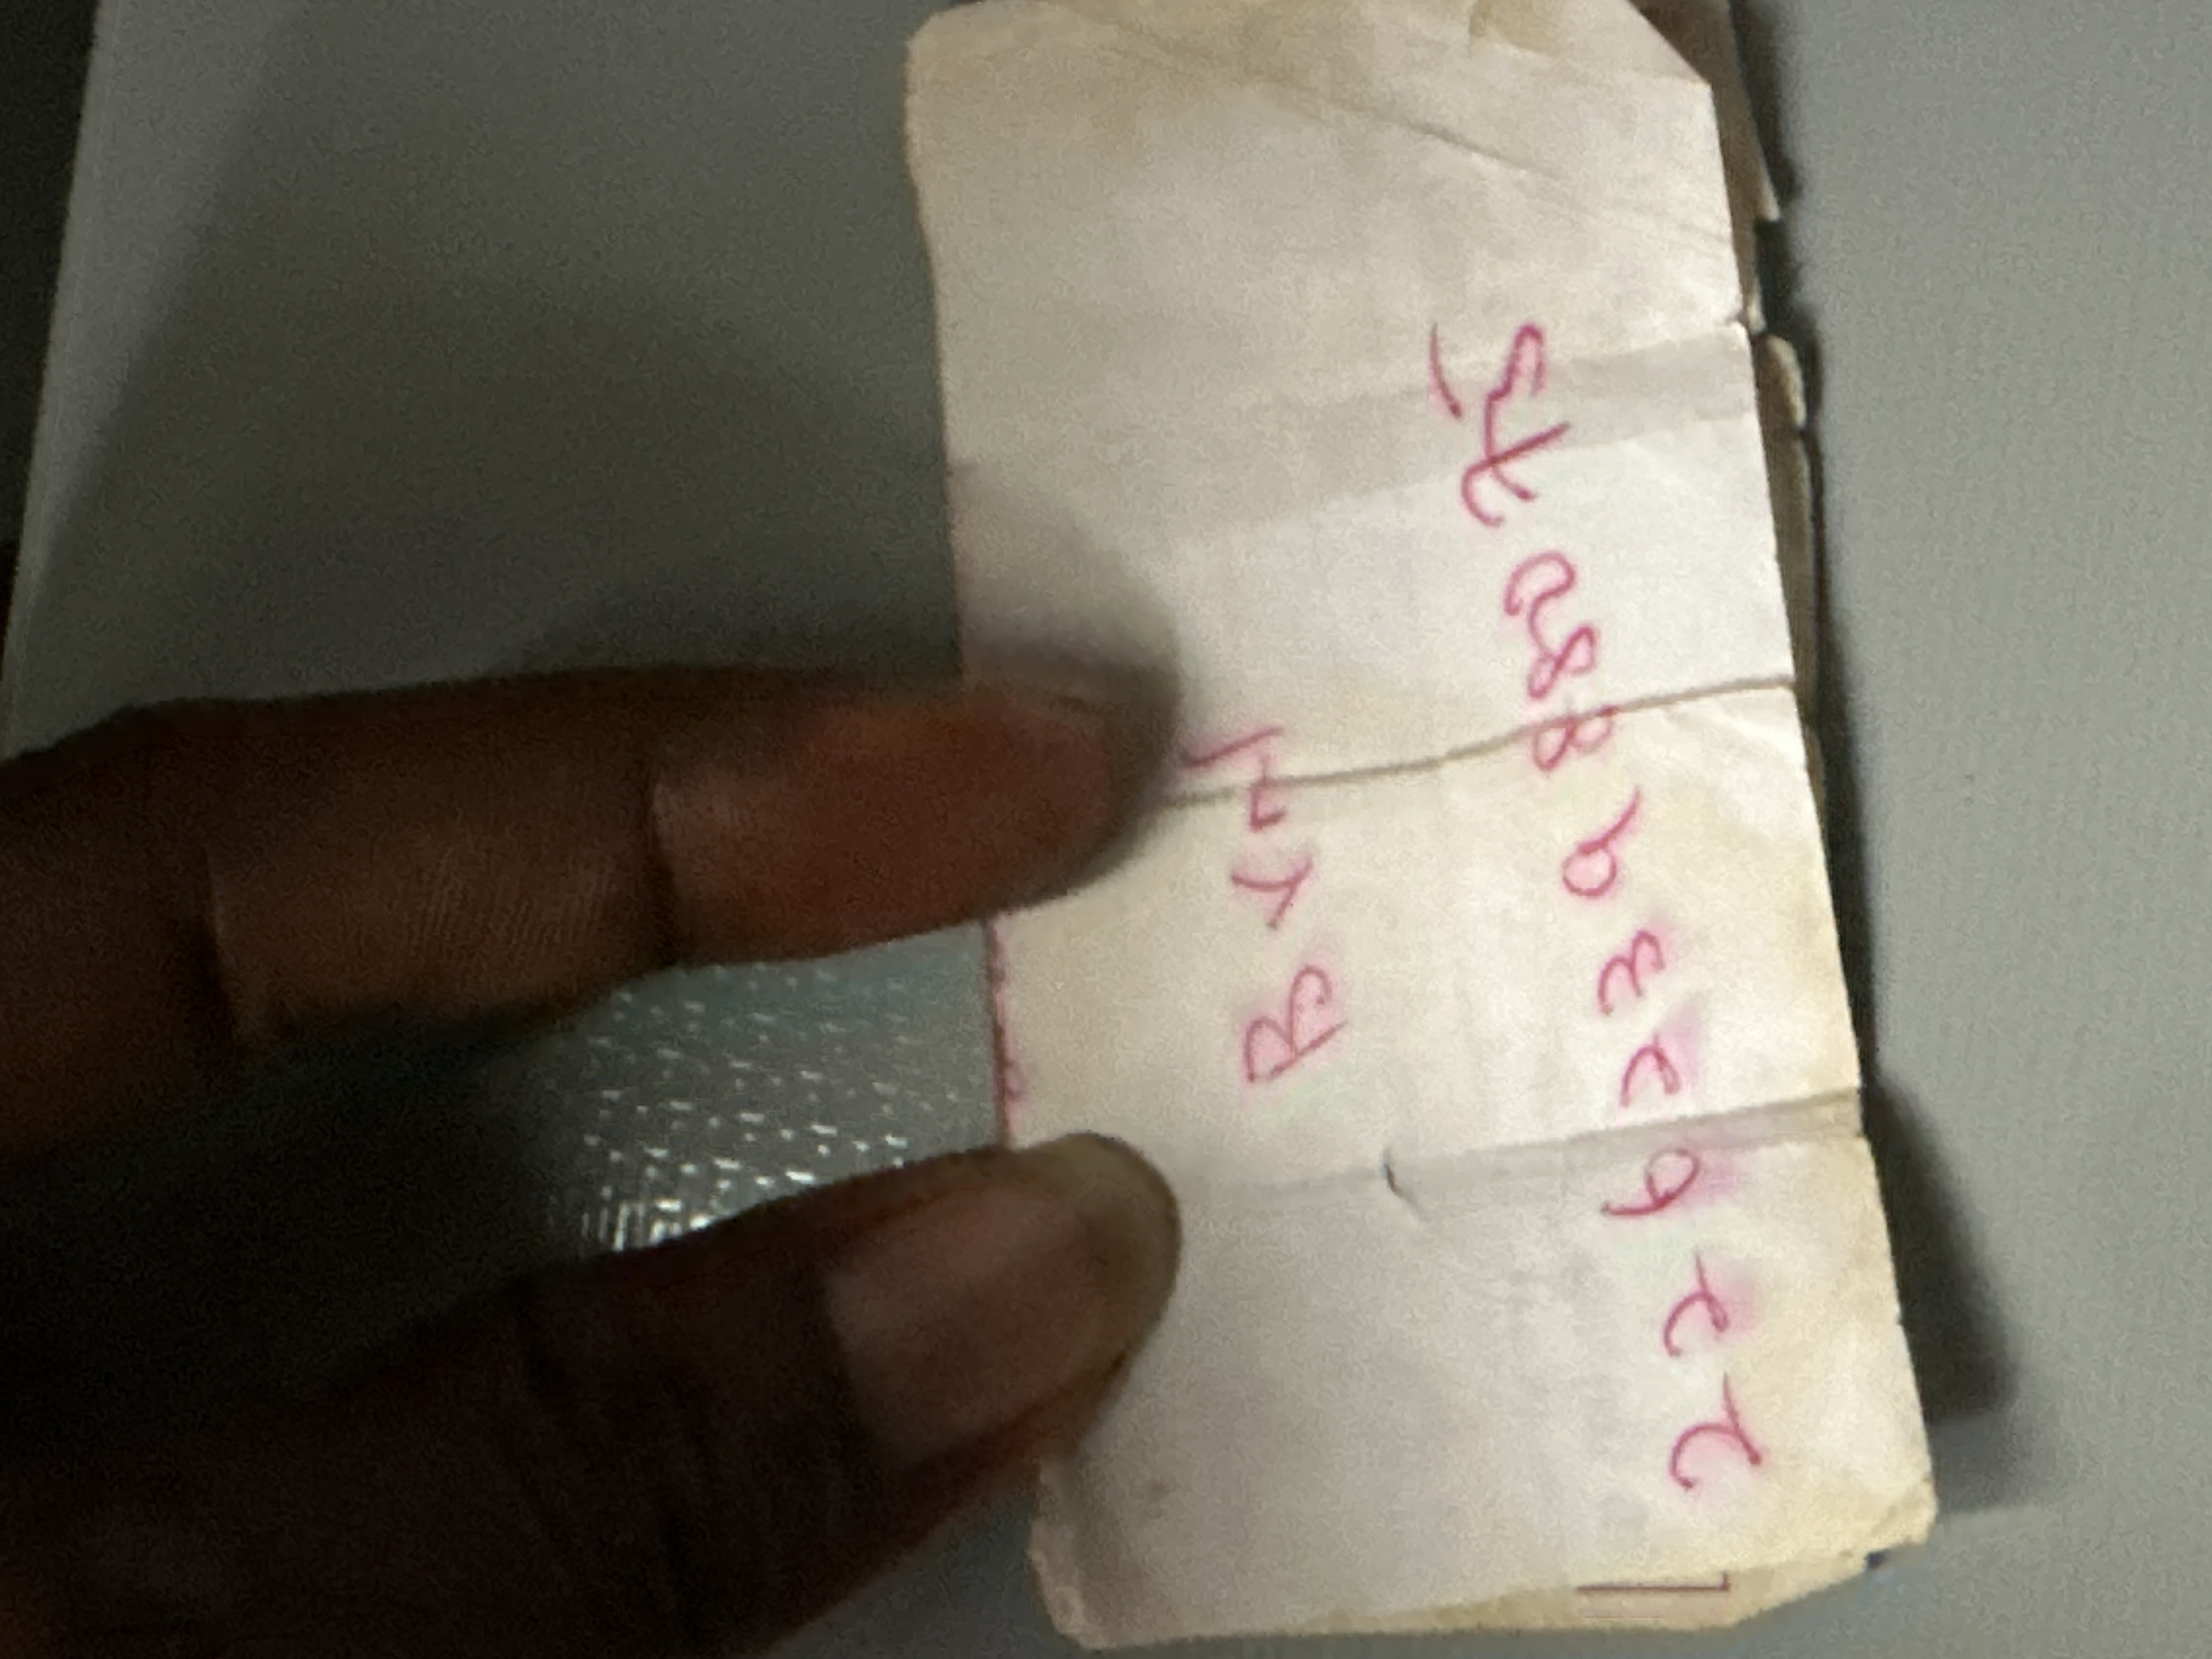 BVN
22623988075